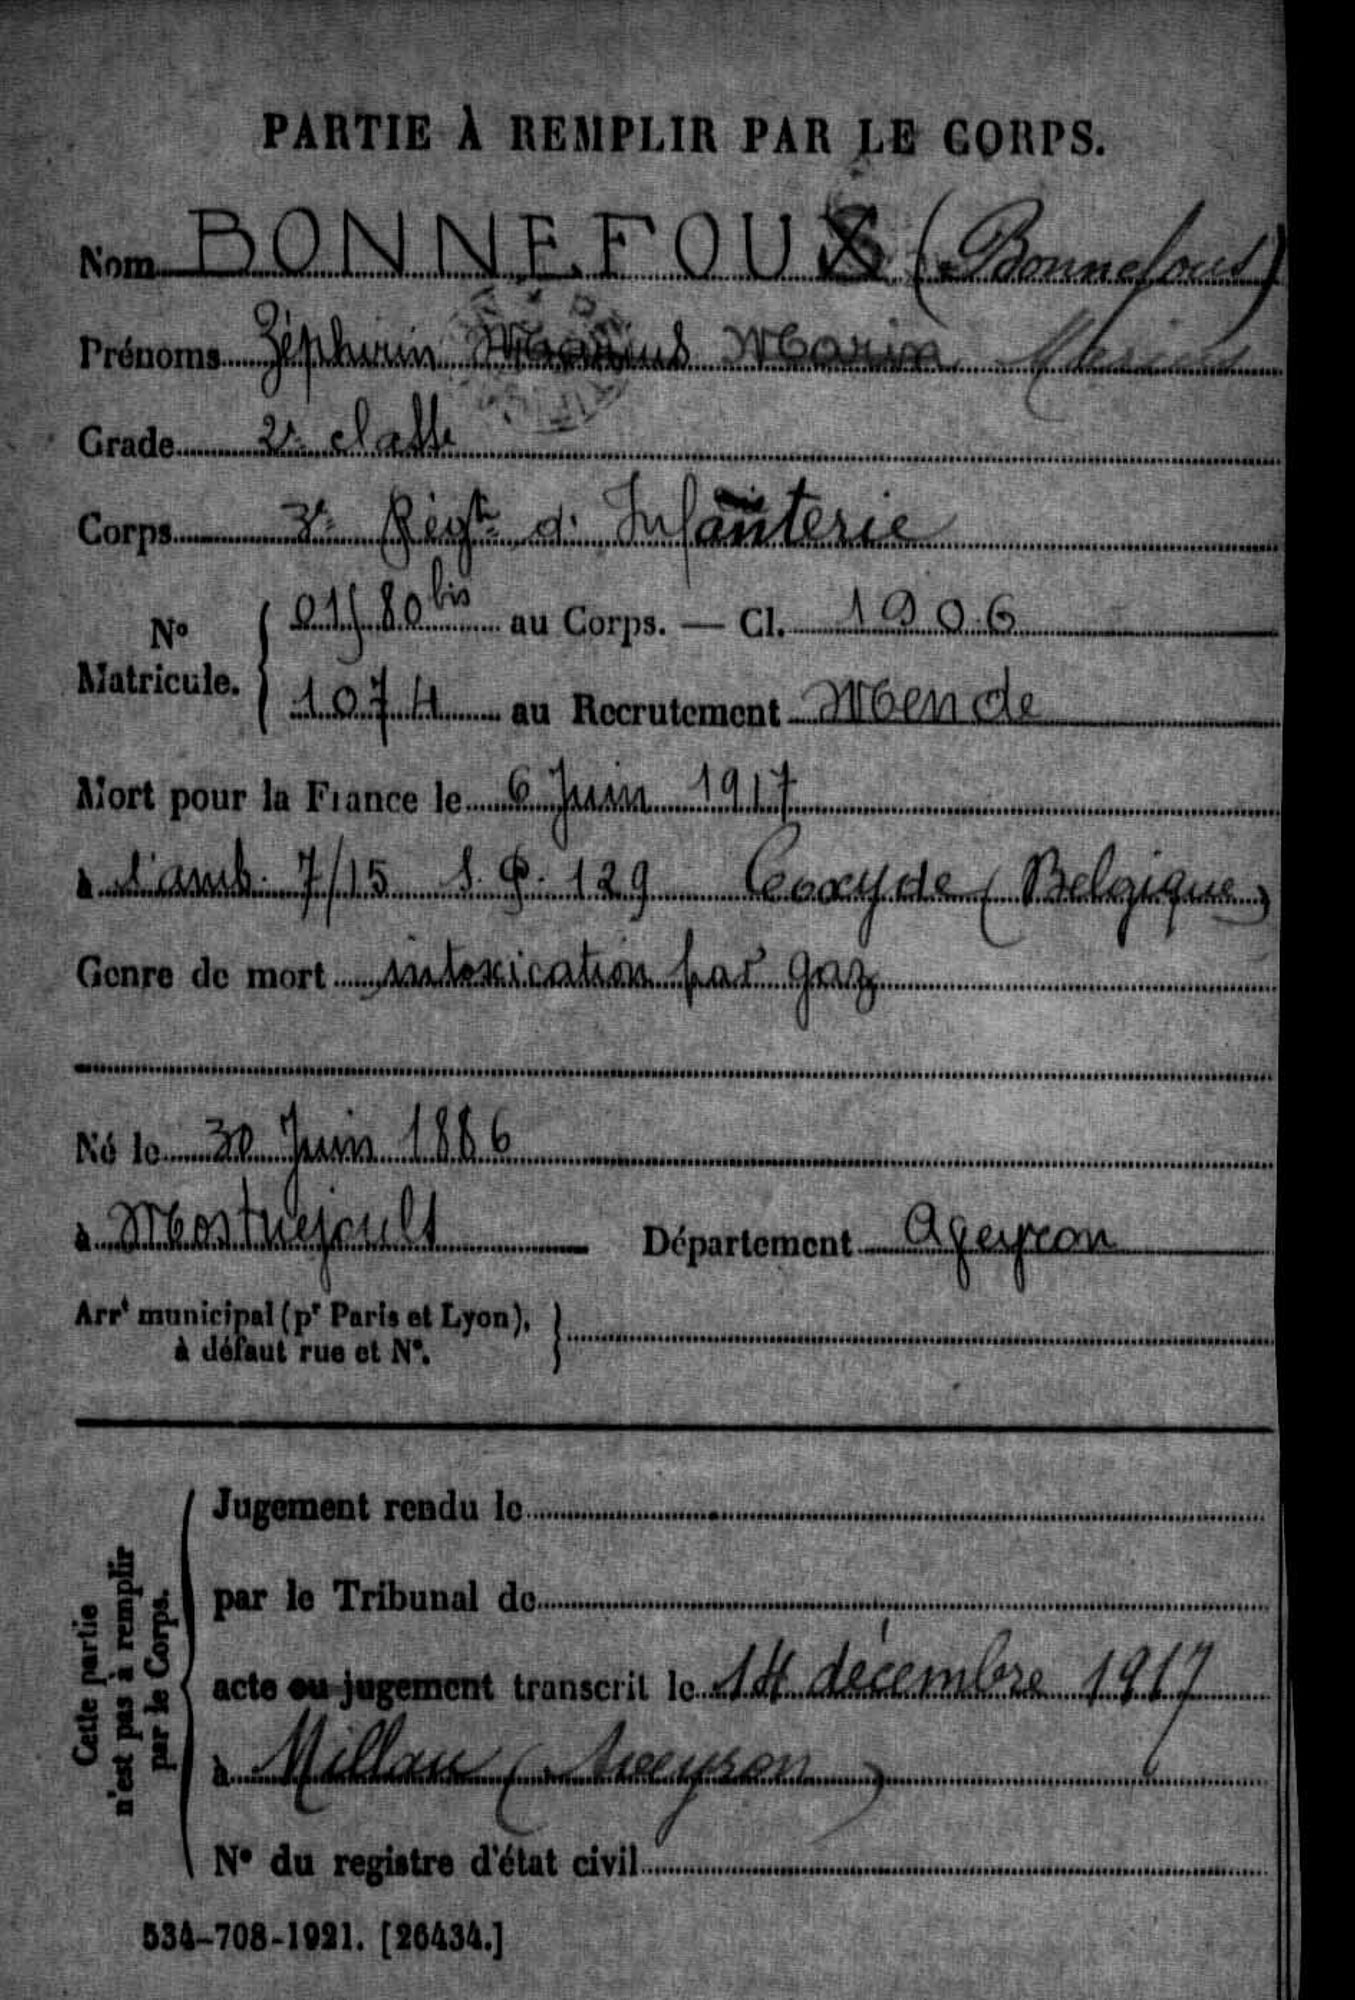 PARTIE À REMPLIR PAR LE CORPS.
Nom BONNEFOUS (Bonnefous)
Prénoms Zéphirin Marius Marin Marius
Grade 2e classe
Corps 3e Régt d'Infanterie
No Matricule. 01580 bis au Corps. — Cl. 1906
1074 au Recrutement Mende
Mort pour la France le 6 Juin 1917
à l'amb. 7/15 S.P. 129 Coxyde (Belgique)
Genre de mort intoxication par gaz
Né le 30 Juin 1886
à Mostuejouls Département Aveyron
Arrt municipal (pr Paris et Lyon),
à défaut rue et N°.
Cette partie
n'est pas à remplir
par le Corps.
Jugement rendu le
par le Tribunal de
acte ou jugement transcrit le 14 décembre 1917
à Millau (Aveyron)
N° du registre d'état civil
534-708-1921. [26434.]